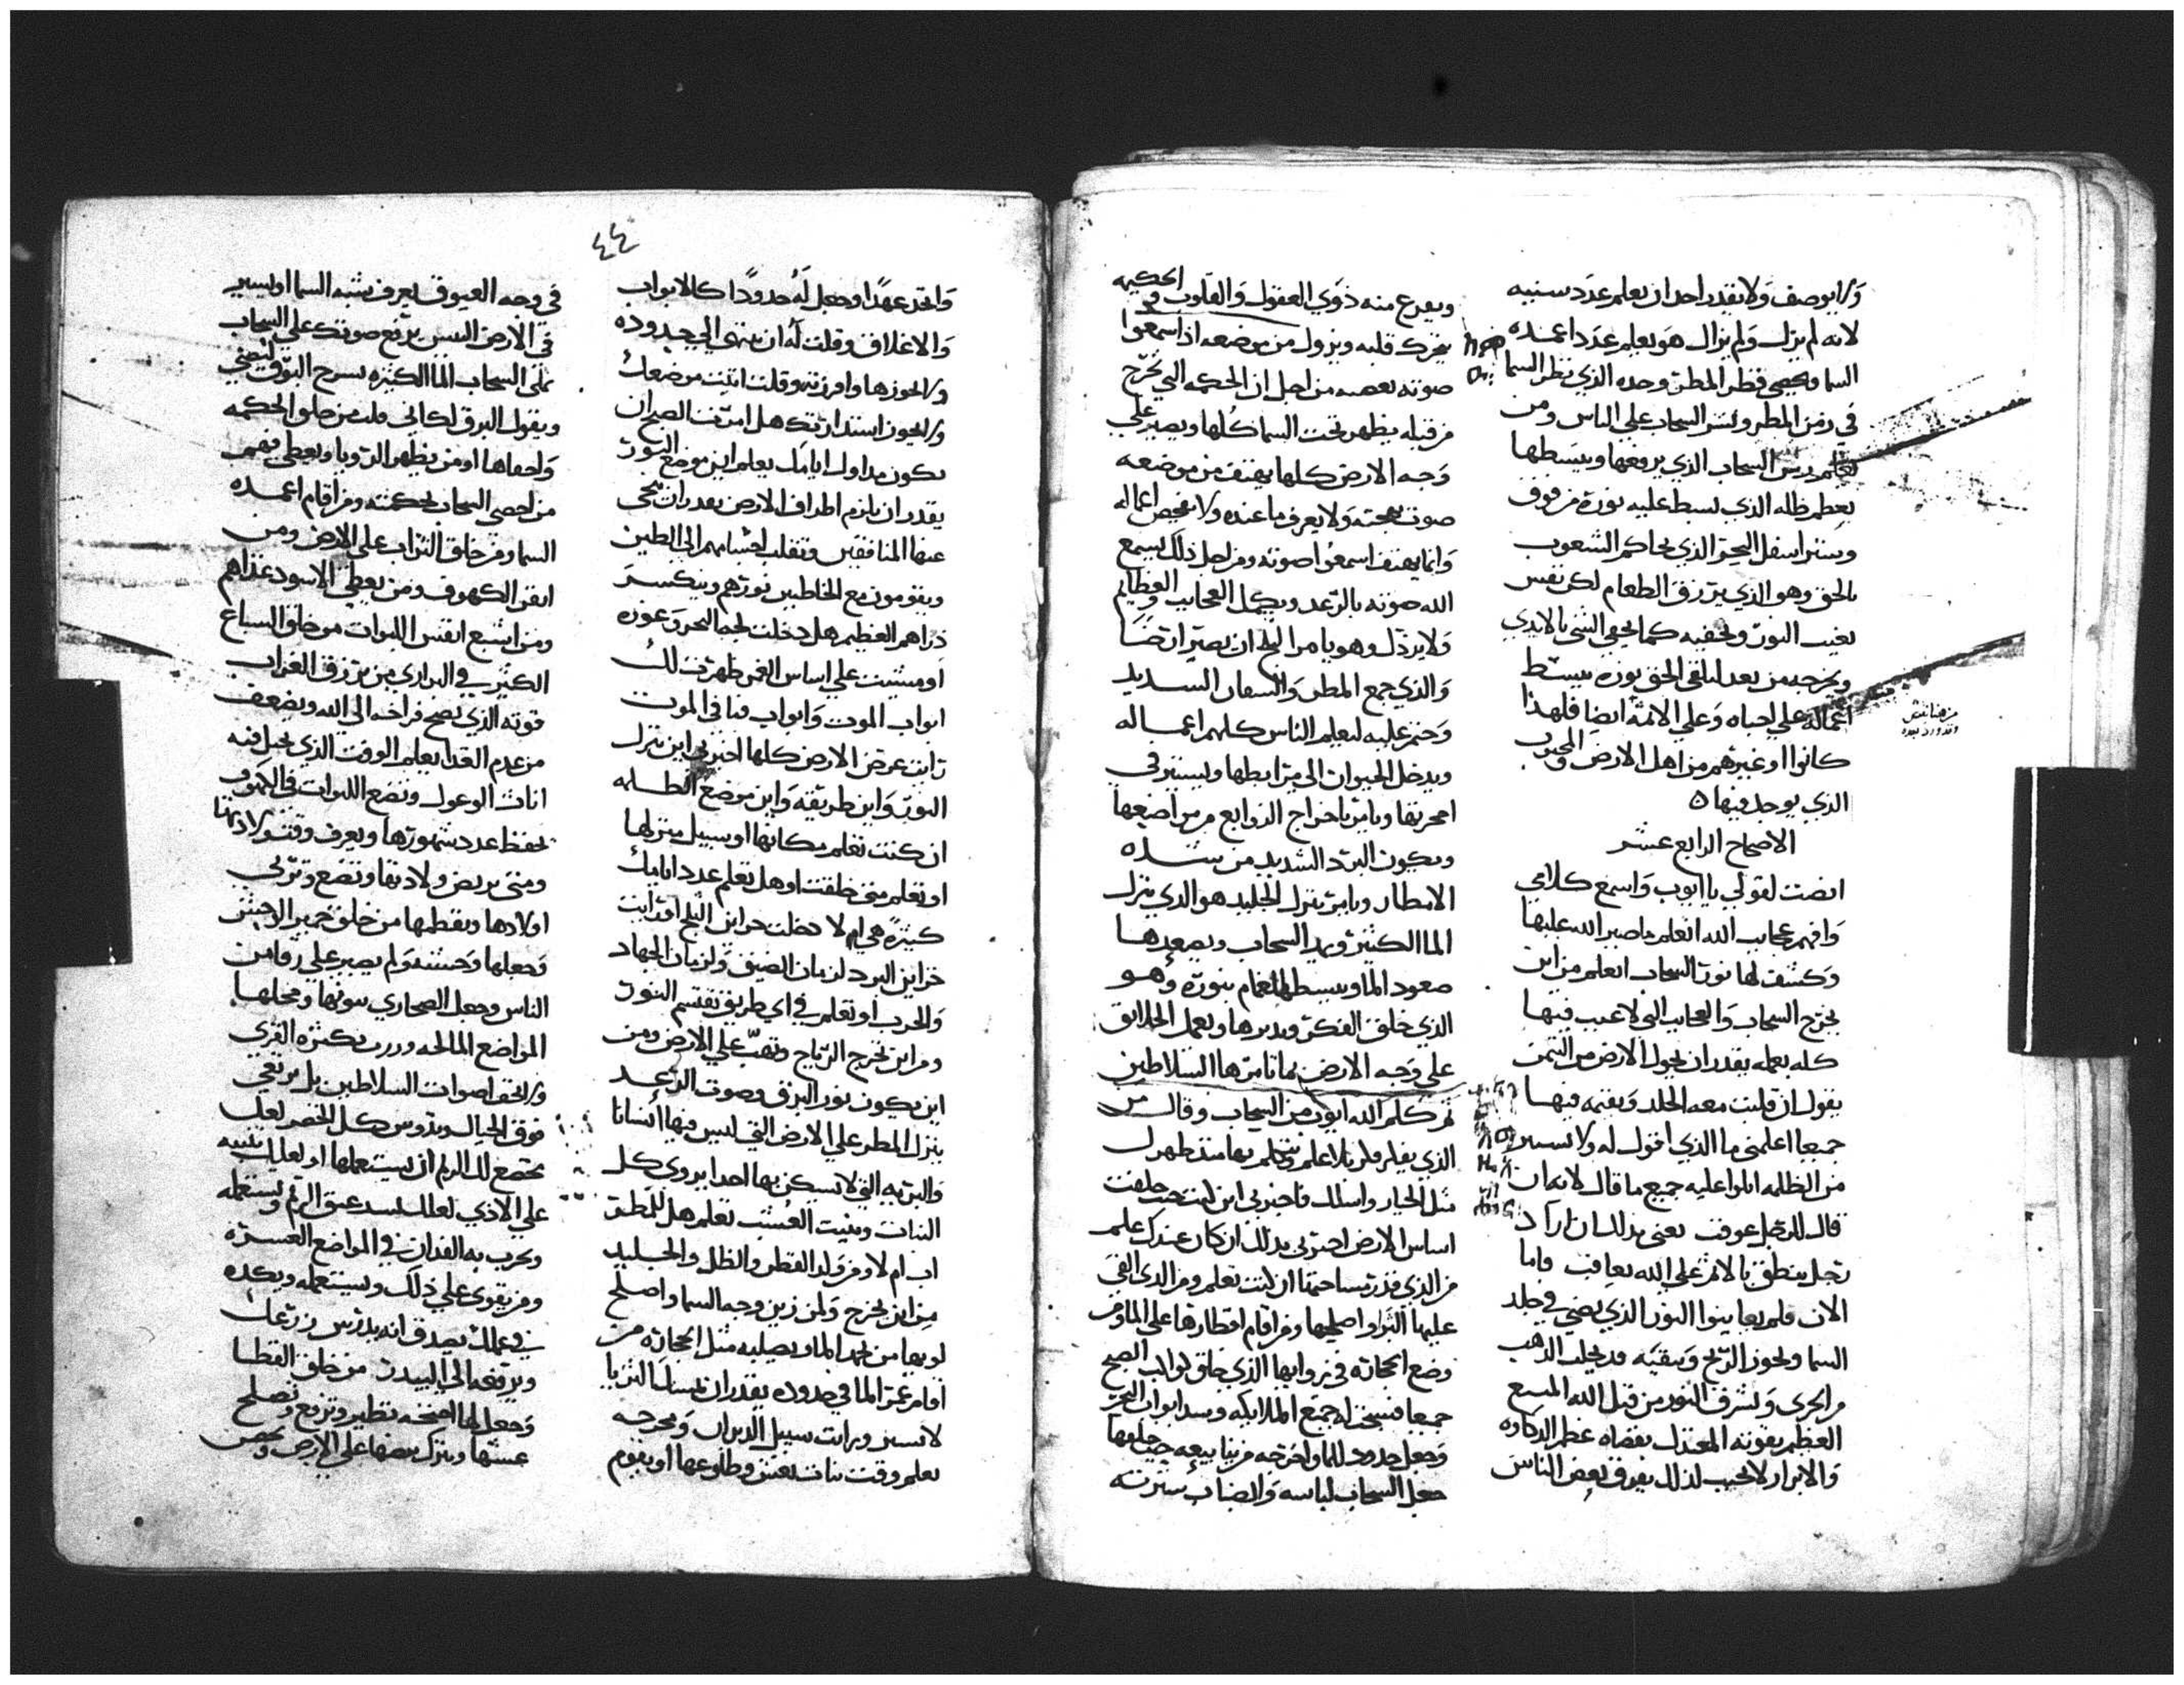 ولا يوصف ولا يقدر احد ان يعلم عدد سنيه
لانه لم يزل ولم يزال هو يعلم عدد اعمده
السما ويحصي قطر المطر وحده الذي نظر السما
في زمن المطر ونشر السحاب علي الناس ومن
يعلم رش السحاب الذي يرفعها ويبسطها
بعظم ظله الذي بسط عليه نوره من فوق
وستر اسفل البحر الذي يحاكم الشعوب
بالحق وهو الذي يرزق الطعام لكل نفس
يغيب النور ويخفيه كما يخفي الشي بالايدي
ويخرجه من بعد نوره يبسط
اعماله علي احباه وعلي الائمة ايضا فلهذا
كانوا او غيرهم من اهل الارض
الذي يوجد فيها
الاصحاح الرابع عشر
انصت لقولي يا ايوب واسمع كلامي
وافهم عجايب الله اتعلم ما صير الله عليها
وكشف لها نور السحاب اتعلم من اين
يخرج السحاب والعجايب التي لا عيب فيها
كله يعلمه يقدر ان يحول الارض من التيمن
يقول ان قلبت معه الجلد وبقيته فيها
جميعا اعلمني ما الذي اقول له ولا نستر
من الظلمه اتلوا عليه جميع ما قال لانه ان
قال للرجل عوفت يعني بذلك ان اراد
رجل ينطق بالامر علي الله يعاقب واما
الان فلم يعاينوا النور الذي يضي في جلد
السما ويجوز الريح وينقيه
ويشرق النور من قبل الله
العظيم بقوته المعتدل بقضاه
والابرار لا يجيب لذلك يفرق بعض الناس
ويفزع منه ذوي العقول والقلوب الحكيمه
يتحرك قلبه ويزول من موضعه اذا سمعوا
صوته بغضبه من اجل ان الحكمه التي تخرج
من قبله يظهر تحت السما كلها ويصير علي
وجه الارض كلها يهتف من موضعه
صوت بهجته ولا يعرف ما عنده ولا يفحص اعماله
وانما يهتف اسمعوا صوته ومن اجل ذلك يسمع
الله صوته بالرعد ويكمل العجايب والعظايم
ولا يرذل وهو يامر الثلج ان يصير ارضا
والذي جمع المطر الشديد
وختم عليه ليعلم الناس كلهم اعماله
ويدخل الحيوان الي مرابطها ويستتر في
حجرتها ويامر باخراج الزوابع من مواضعها
ويكون البرد الشديد من شده
الامطار ويامر بنزل الجليد هو الذي ينزل
الما الكثير ويريد السحاب ويصعدها
صعود الما ويبسط الغمام بنوره وهو
الذي خلق الفكر ويدبرها ويعمل الخلايق
علي وجه الارض بما تامرها السلاطين
ثم كلم الله ايوب من السحاب وقال من
الذي
مثل الجبار واسلك فاخبرني اين كنت حيث خلقت
اساس الارض اخبرني بذلك ان كان عندك علم
من الذي قدر مساحتها ان كنت تعلم ومن الذي القي
عليها واصلحها ومن اقام اقطارها علي الما ومن
وضع الحجاره في زواياها الذي خلق كواكب الصبح
جميعا فسبحت له جميع الملايكه وسد ابواب البحر
وجعل حدود للما واخرجه من ينابيعه حيث خلقها
جعل السحاب لباسه والضباب سترته
٤٤
واتخذ عهدا وجعل له حدودا كالابواب
والاغلاق وقلت له ان ينتهي الي حدوده
ولا يجوزها وامرته وقلت اثبت موضعك
ولا يجوز استدارتك هل امرت الصبح ان
يكون من اول ايامك يعلم اين موضع النور
يقدر ان يلزم اطراف الارض يقدر ان ينحي
عنها المنافقين وتنقلب اجسامهم الي الطين
ويقومون مع الخاطيين نورهم وينكسر
ذراعهم العظيم هل دخلت لجه البحر وغوره
او مشيت علي اساس الغمر ظهرت لك
ابواب الموت وابواب فنا في الموت
رايت عرض الارض كلها اخبرني اين ينزل
النور واين طريقه واين موضع الظلمه
ان كنت تعلم مكانها او سبيل منزلها
او تعلم متي خلقت او هل تعلم عدد ايامك
كثيره هي ام لا دخلت خزاين الثلج او رايت
خزاين البرد لزمان الضيق ولزمان الجهاد
والحرب او تعلم في اي طريق تقتسم النور
ومن اين تخرج الرياح وتهب علي الارض ومن
اين يكون نور البرق وصوت الرعد
ينزل المطر علي الارض التي ليس فيها انسانا
والبريه التي لا تسكن بها احدا يروي كل
النبات وينبت العشب تعلم هل للمطر
اب ام لا ومن ولد القطر والظل والجليد
من اين يخرج ولمن زين وجه السما واصلح
لونها من يجمد الما ويصلبه مثل الحجاره من
اقام عمق الما في حدوده يقدر ان تمسك الثريا
لا تسير ورايت سبيل الدبران ومخرجه
تعلم وقت بنات نعش وطلوعها او يقوم
في وجه العيوق يعرف شبه السما او يسير
في الارض اليس يرفع صوتك علي السحاب
تملي السحاب الما الكثيره تسرح البرق ليضي
ويقول البرق لك اني قلت من خلق الحكمه
واخفاها او من يظهر الرويا ويعطي فهم
من احصي السحاب بحكمته ومن اقام اعمده
السما ومن خلق التراب علي الارض ومن
اتقن الكهوف ومن يعطي الاسود غذاهم
ومن اشبع انفس اللبوات من خلق السباع
الكثير في البراري من يرزق الغراب
قوته الذي يصيح فراخه الي الله ويضعف
من عدم الغدا يعلم الوقت الذي يحبل فيه
اناث الوعول وتضع اللبوات في الكهوف
يحفظ عدد شهورها ويعرف وقت ولادتها
ومتي يربض ولادتها وتضع وتربي
اولادها ويفطمها من خلق حمير الوحش
وجعلها وحشيه ولم يصير علي رقا من
الناس وجعل الصحاري بيوتها ومحلها
المواضع المالحه بكثره القري
ولا يخف اصوات السلاطين بل يرتقي
فوق الجبال ويدوس كل الخضر لعل
تخضع لك الريم ان يستعملها او لعلك تثنيه
علي الاذي لعلك تشد عنق الريم وتستعمله
ويحرث به الفدان في المواضع العسره
ومن يقوي علي ذلك ويستعمله ويكده
في عملك تصدق انه يدرس زرعك
ويرفعه الي البيدر من خلق القطا
وجعل لها اجنحه تطير وترتفع وتصلح
عشها وتترك بيضها علي الارض